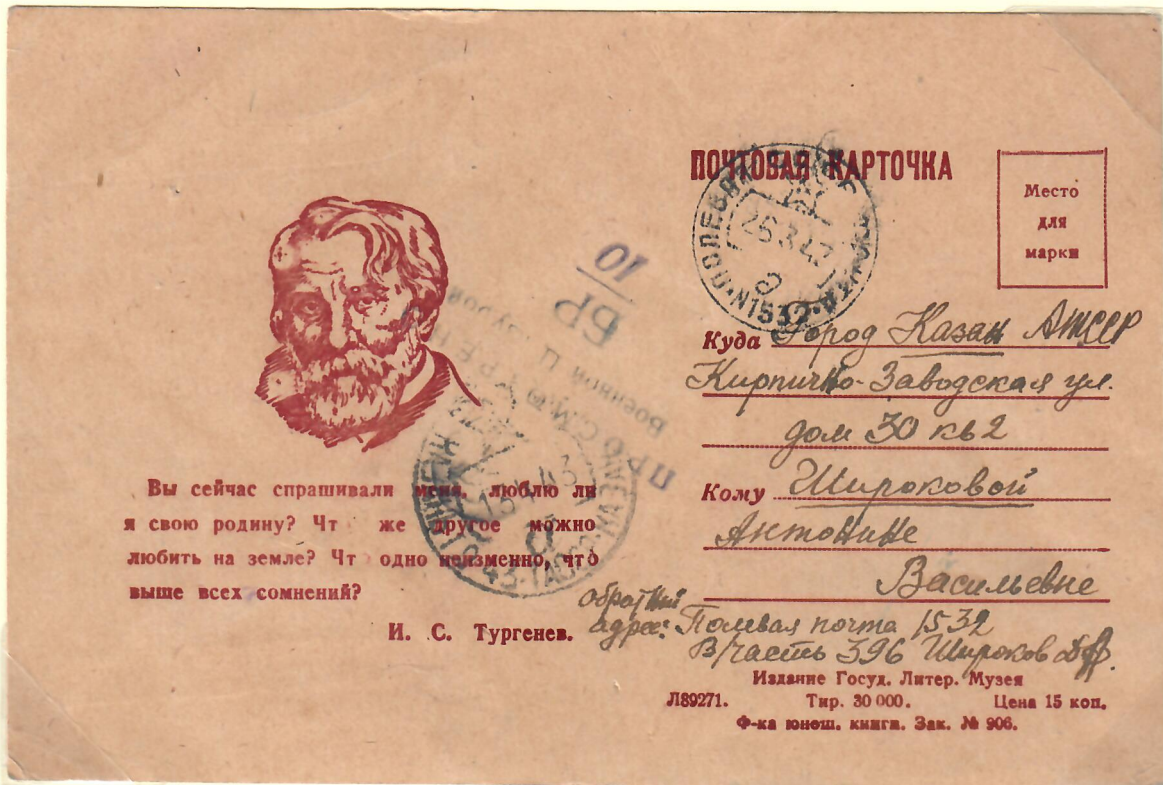 ПОЧТОВАЯ КАРТОЧКА
Место
для
марки
10
БР
ПРОСМОТРЕНО
Военной Цензурой
ПОЛЕВАЯ
N1532
26 3 43
Куда Город Казан АТССР
Кирпично-Заводская ул.
дом 30 кв 2
Кому Широковой
Антонине
Васильевне
Обратний
адрес: Полевая почта 1532
В/часть 396 Широков
Вы сейчас спрашивали меня, люблю ли
я свою родину? Чт же другое можно
любить на земле? Чт одно неизменно, что
выше всех сомнений?
И. С. Тургенев.
Издание Госуд. Литер. Музея
Л89271. Тир. 30 000. Цена 15 коп.
Ф-ка юнош. книга. Зак. № 906.